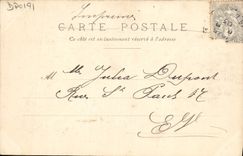 DA0191
Imprimé
CARTE POSTALE
Ce côté est exclusivement réservé à l'adresse
Mlle Julia Dupont
Rue St Paul 17
E/V